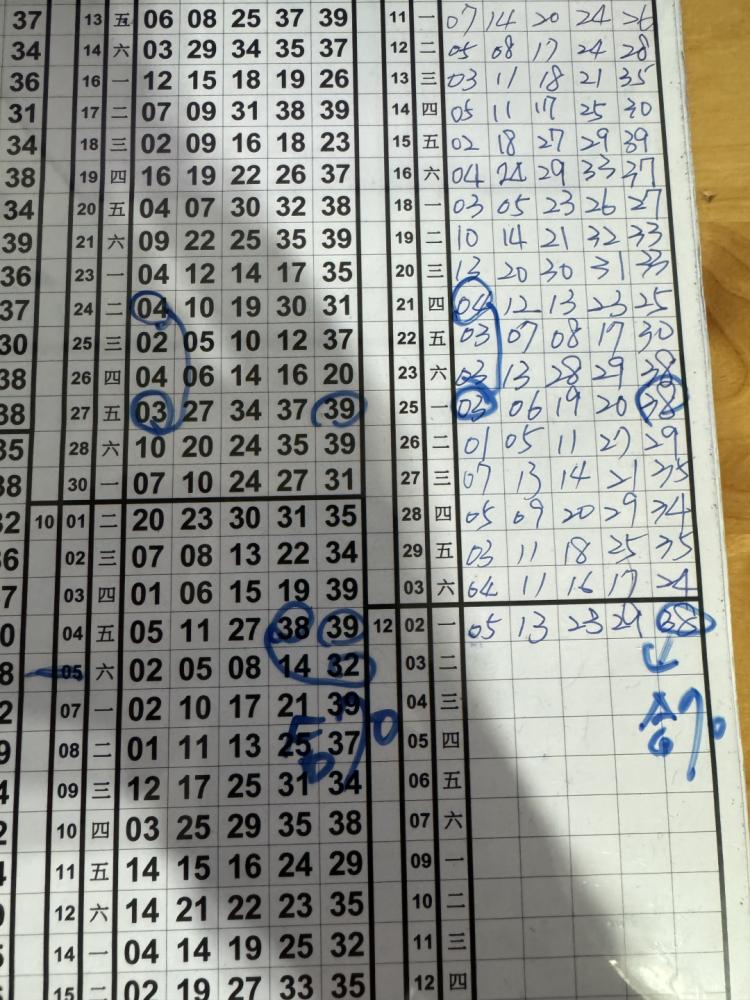 37 13 五 06 08 25 37 39
34 14 六 03 29 34 35 37
36 16 一 12 15 18 19 26
31 17 二 07 09 31 38 39
34 18 三 02 09 16 18 23
38 19 四 16 19 22 26 37
34 20 五 04 07 30 32 38
39 21 六 09 22 25 35 39
36 23 一 04 12 14 17 35
37 24 二 04 10 19 30 31
30 25 三 02 05 10 12 37
38 26 四 04 06 14 16 20
38 27 五 03 27 34 37 39
35 28 六 10 20 24 35 39
38 30 一 07 10 24 27 31
32 10 01 二 20 23 30 31 35
36 02 三 07 08 13 22 34
7 03 四 01 06 15 19 39
0 04 五 05 11 27 38 39
8 05 六 02 05 08 14 32
2 07 一 02 10 17 21 39
9 08 二 01 11 13 25 37
4 09 三 12 17 25 31 34
2 10 四 03 25 29 35 38
11 五 14 15 16 24 29
12 六 14 21 22 23 35
14 一 04 14 19 25 32
15 二 02 19 27 33 35
11 一 07 14 20 24 26
12 二 05 08 17 24 28
13 三 03 11 18 21 35
14 四 05 11 17 25 30
15 五 02 18 27 29 39
16 六 04 29 33 37
18 一 03 05 23 26 27
19 二 10 14 21 32 33
20 三 13 20 30 31 33
21 四 04 12 13 23 25
22 五 03 07 08 17 30
23 六 03 13 28 29 38
25 一 03 06 19 20 38
26 二 01 05 11 27 29
27 三 07 13 14 21 35
28 四 05 09 20 29 34
29 五 03 11 18 25 35
03 六 04 11 16 17 24
12 02 一 05 13 23 29 38
03 二
04 三
05 四
06 五
07 六
09 一
10 二
11 三
12 四